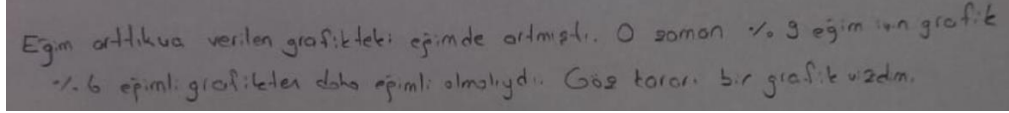 Eğim arttıkça verilen grafikteki eğimde artmıştı. O zaman % 9 eğim için grafik
% 6 eğimli grafikten daha eğimli olmalıydı. Göz kararı bir grafik çizdim.